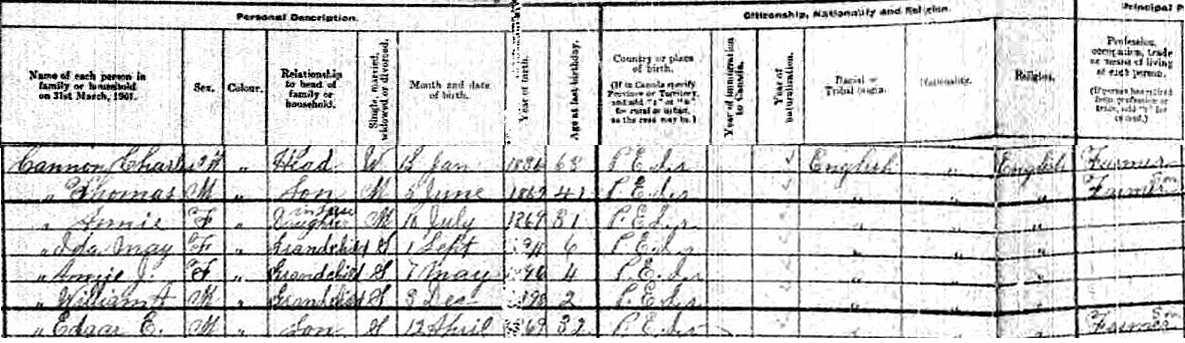 Personal Description. Citizenship, Nationality and Religion. Principal P
Name of each person in family or household on 31st March, 1901. Sex. Colour. Relationship to head of family or household. Single, married, widowed or divorced. Month and date of birth. Year of birth. Age at last birthday. Country or place of birth. (If in Canada specify Province or Territory, and add "r" or "u" for rural or urban, as the case may be.) Year of immigration to Canada. Year of naturalization. Racial or Tribal origin. Nationality. Religion. Profession, occupation, trade or means of living of each person. (If person has retired from profession or trade, add "r" for retired.)
Cannon, Charles M " Head W Jan P.E.Is English " English Farmer
" Thomas M " Son M 5 June 41 P.E.Is " " " Farmer Son
" Annie F " in law Daughter M 16 July 1869 31 P.E.Is " " "
" Ida May F " Grandchild S 1 Sept 6 P.E.Is " " "
" Annie J. F " Grandchild S 7 May 4 P.E.Is " " "
" William A M " Grandchild S 8 Dec 2 P.E.Is " " "
" Edgar E. M " Son S 12 April 1869 32 P.E.Is " " " Farmer Son